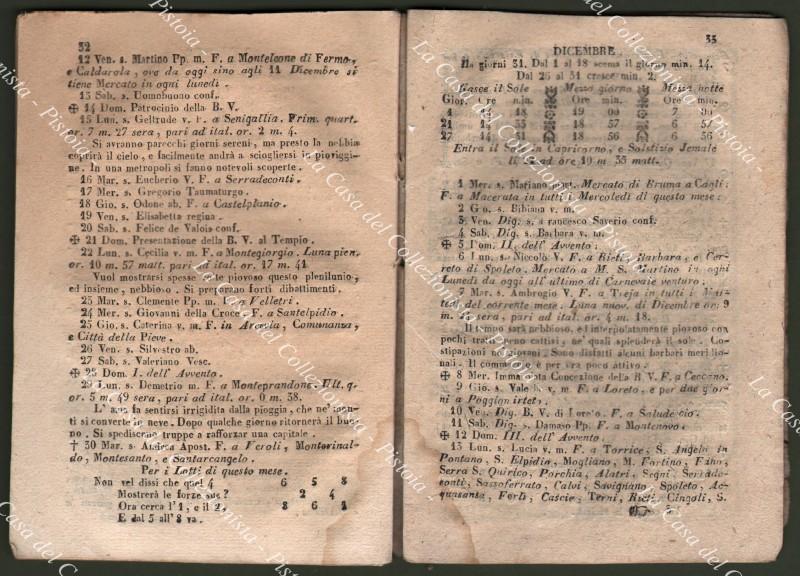 32
12 Ven. s. Martino Pp. m. F. a Monteleone di Fermo,
e Caldarola, ove da oggi sino agli 11 Dicembre si
tiene Mercato in ogni lunedì.
13 Sab. s. Uomobuono conf.
✠ 14 Dom. Patrocinio della B. V.
15 Lun. s. Geltrude v. F. a Senigallia. Prim. quart.
or. 7 m. 27 sera, pari ad ital. or. 2 m. 4.
Si avranno parecchi giorni sereni, ma presto la nebbia
coprirà il cielo, e facilmente andrà a sciogliersi in pioviggi-
ne. In una metropoli si fanno notevoli scoperte.
16 Mar. s. Eucherio V. F. a Serradeconti.
17 Mer. s. Gregorio Taumaturgo.
18 Gio. s. Odone ab. F. a Castelplanio.
19 Ven. s. Elisabetta regina.
20 Sab. s. Felice de Valois conf.
✠ 21 Dom. Presentazione della B. V. al Tempio.
22 Lun. s. Cecilia v. m. F. a Montegiorgio. Luna pien.
or. 10 m. 57 matt. pari ad ital. or. 17 m. 41.
Vuol mostrarsi spesse volte piovoso questo plenilunio,
ed insieme, nebbioso. Si preparano forti dibattimenti.
23 Mar. s. Clemente Pp. m. F. a Velletri.
24 Mer. s. Giovanni della Croce F. a Santelpidio.
25 Gio. s. Caterina v. m. F. in Arcevia, Comunanza,
e Città della Pieve.
26 Ven. s. Silvestro ab.
27 Sab. s. Valeriano Vesc.
✠ 28 Dom. I. dell' Avvento.
29 Lun. s. Demetrio m. F. a Monteprandone. Ult. q.
or. 5 m. 49 sera, pari ad ital. or. 0 m. 38.
L' aria fa sentirsi irrigidita dalla pioggia, che ne' mon-
ti si converte in neve. Dopo qualche giorno ritornerà il buo-
no. Si spediscono truppe a rafforzar una capitale.
† 30 Mar. s. Andrea Apost. F. a Veroli, Montorinal-
do, Montesanto, e Santarcangelo.
Per i Lotti di questo mese.
Non vel dissi che quel 4 6 5 8
Mostrerà le forze sue? 2 4
Ora cerca l' 1, e il 2, 8 6 1
E dal 5 all' 8 va.
33
DICEMBRE
Ha giorni 31. Dal 1 al 18 scema il giorno min. 14.
Dal 25 al 31 cresce min. 2.
Nasce il Sole Mezzo giorno Mezza notte
Gior. Ore min. Ore min. Ore min.
1 18 19 00 7
21 14 35 18 57 6 57
31 18 56 6 56
Entra il Sole in Capricorno, e Solstizio Jemale
li ad ore 10 m 33 matt.
1 Mer. s. Mariano Mercato di Bruma a Cagli:
F. a Macerata in tutti i Mercoledì di questo mese:
2 Gio. s. Bibiana v. m.
3 Ven. Dig. s. Francesco Saverio conf.
4 Sab. Dig. s. Barbara v. m.
✠ 5 Dom. II. dell' Avvento.
6 Lun. s. Niccolò V. F. a Rieti, Barbara, e Cer-
reto di Spoleto. Mercato a M. S. Martino in ogni
Lunedì da oggi all' ultimo di Carnevale venturo.
7 Mar. s. Ambrogio V. F. a Treja in tutti i Mar-
tedì del corrente mese. Luna nuov. di Dicembre or. 9
m. sera, pari ad ital. or. 4 m. 18.
Il tempo sarà nebbioso, ed interpolatamente piovoso con
pochi tratti meno cattivi, ne' quali splenderà il sole. Co-
stipazioni ai giovani. Sono disfatti alcuni barbari meridio-
nali. Il commercio è per ora poco attivo.
✠ 8 Mer. Immacolata Concezione della B. V. F. a Ceccano.
9 Gio. s. Vale b. v. m. F. a Loreto, e per due gior-
ni a Poggion irtet.
10 Ven. Dig. B. V. di Loreto. F. a Saludecio.
11 Sab. Dig. s. Damaso Pp. F. a Montenovo.
✠ 12 Dom. III. dell' Avvento.
13 Lun. s. Lucia v. m. F. a Torrice, S. Angelo in
Pontano, S. Elpidio, Mogliano, M. Fortino, Fano,
Serra S. Quirico, Porchia, Alatri, Segni, Serrade-
conti, Sassoferrato, Calvi, Savignano, Spoleto, Ac-
quasanta, Forlì, Cascie, Terni, Rieti, Cingoli, S.
La Casa del Collezionista - Pistoia